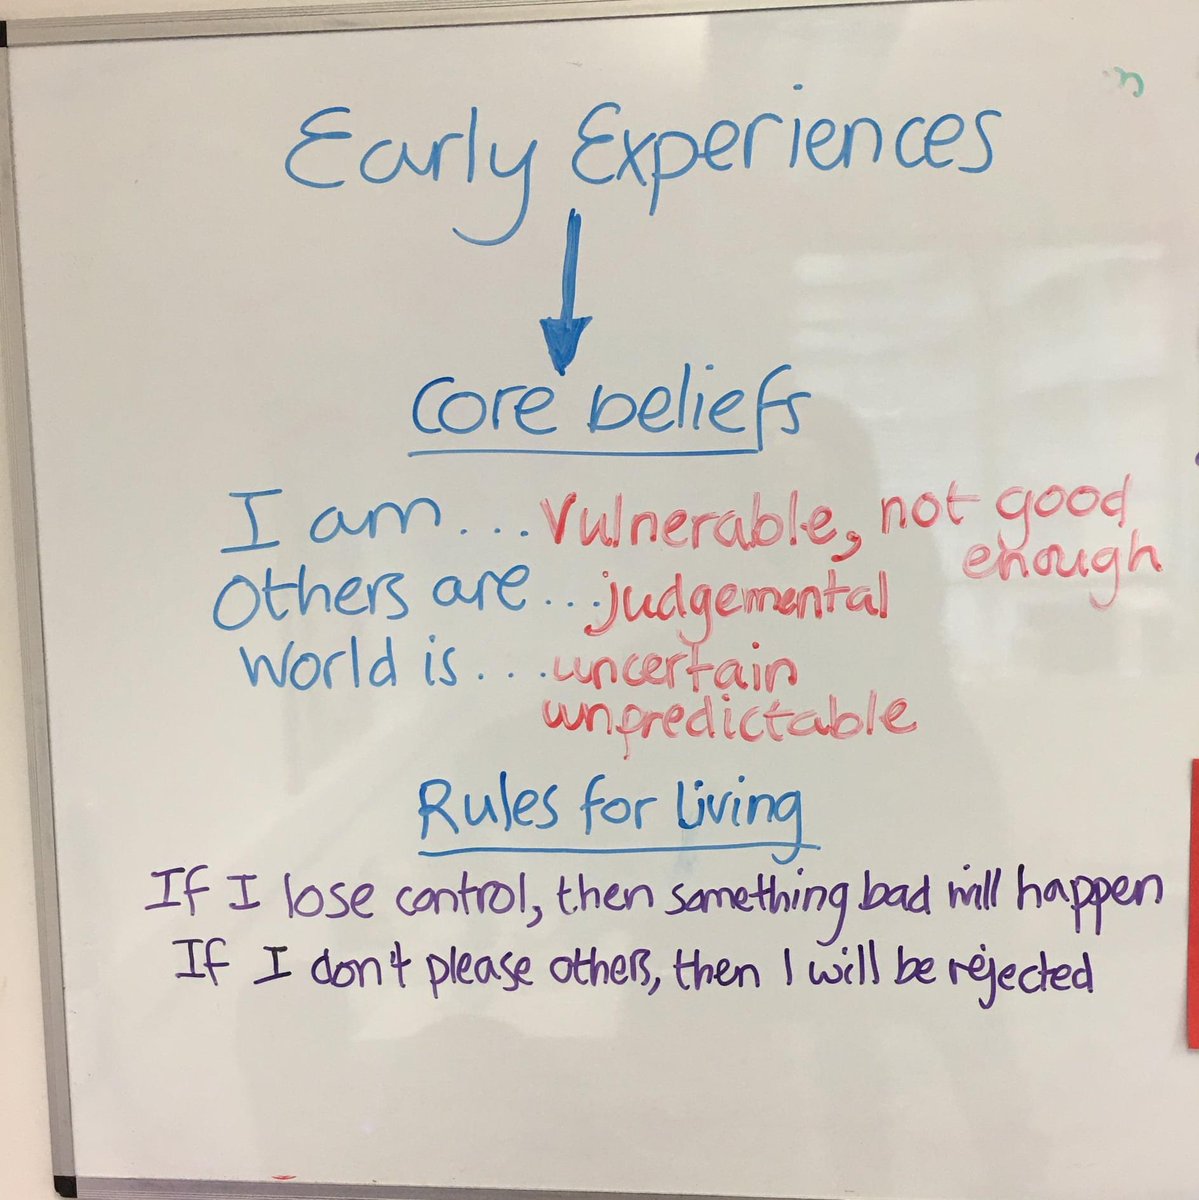 Early Experiences
Core beliefs
I am... Vulnerable, not good
enough
Others are... judgemental
World is.... uncertain
unpredictable
Rules for living
If I lose control, then something bad will happen
If I don't please others, then I will be rejected